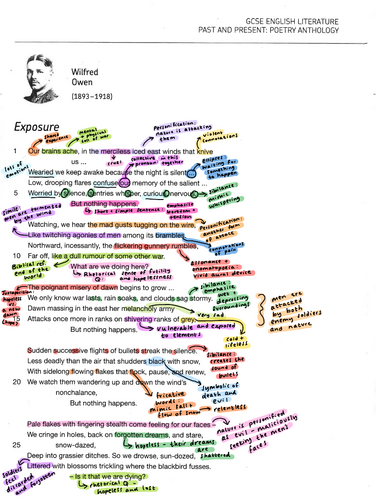 GCSE ENGLISH LITERATURE
PAST AND PRESENT: POETRY ANTHOLOGY
Wilfred
Owen
(1893–1918)
Exposure
Personification:
nature is attacking
them.
violent
connotations
shared
experience
1 Our brains ache, in the merciless iced east winds that knive
us ...
cruel
ellipses
waiting for
something to
happen
Wearied we keep awake because the night is silent...
Low, drooping flares confuse our memory of the salient ...
5 Worried by silence, sentries whisper, curious, nervous,
sibilance
But nothing happens.
short + simple sentence
emphasise
boredom +
tension
Watching, we hear the mad gusts tugging on the wire,
Personification:
Like twitching agonies of men among its brambles.
Northward, incessantly, the flickering gunnery rumbles,
10 Far off, like a dull rumour of some other war.
What are we doing here?
assonance +
onomatopoeia
Biblical:
end of the
world.
Rhetorical
The poignant misery of dawn begins to grow ...
We only know war lasts, rain soaks, and clouds sag stormy.
Dawn massing in the east her melancholy army
15 Attacks once more in ranks on shivering ranks of grey,
But nothing happens.
very sad
vulnerable and exposed
to elements
cold +
lifeless
men are
attacked
by both
enemy soldiers
and nature
Sudden successive flights of bullets streak the silence.
sibilance
creates the
sound of
bullets
Less deadly than the air that shudders black with snow,
With sidelong flowing flakes that flock, pause, and renew,
20 We watch them wandering up and down the wind's
nonchalance,
But nothing happens.
fricative
words:
mimic fall +
flow of snow
relentless
symbolic of
death and
evil
Pale flakes with fingering stealth come feeling for our faces –
We cringe in holes, back on forgotten dreams, and stare,
snow-dazed,
hopeless - their dreams
are shattered
nature is personified
as evil - maliciously
seeking the men's
faces
25 Deep into grassier ditches. So we drowse, sun-dozed,
Littered with blossoms trickling where the blackbird fusses.
– Is it that we are dying?
rhetorical Q -
hopeless and lost
soldiers
discarded
and forgotten